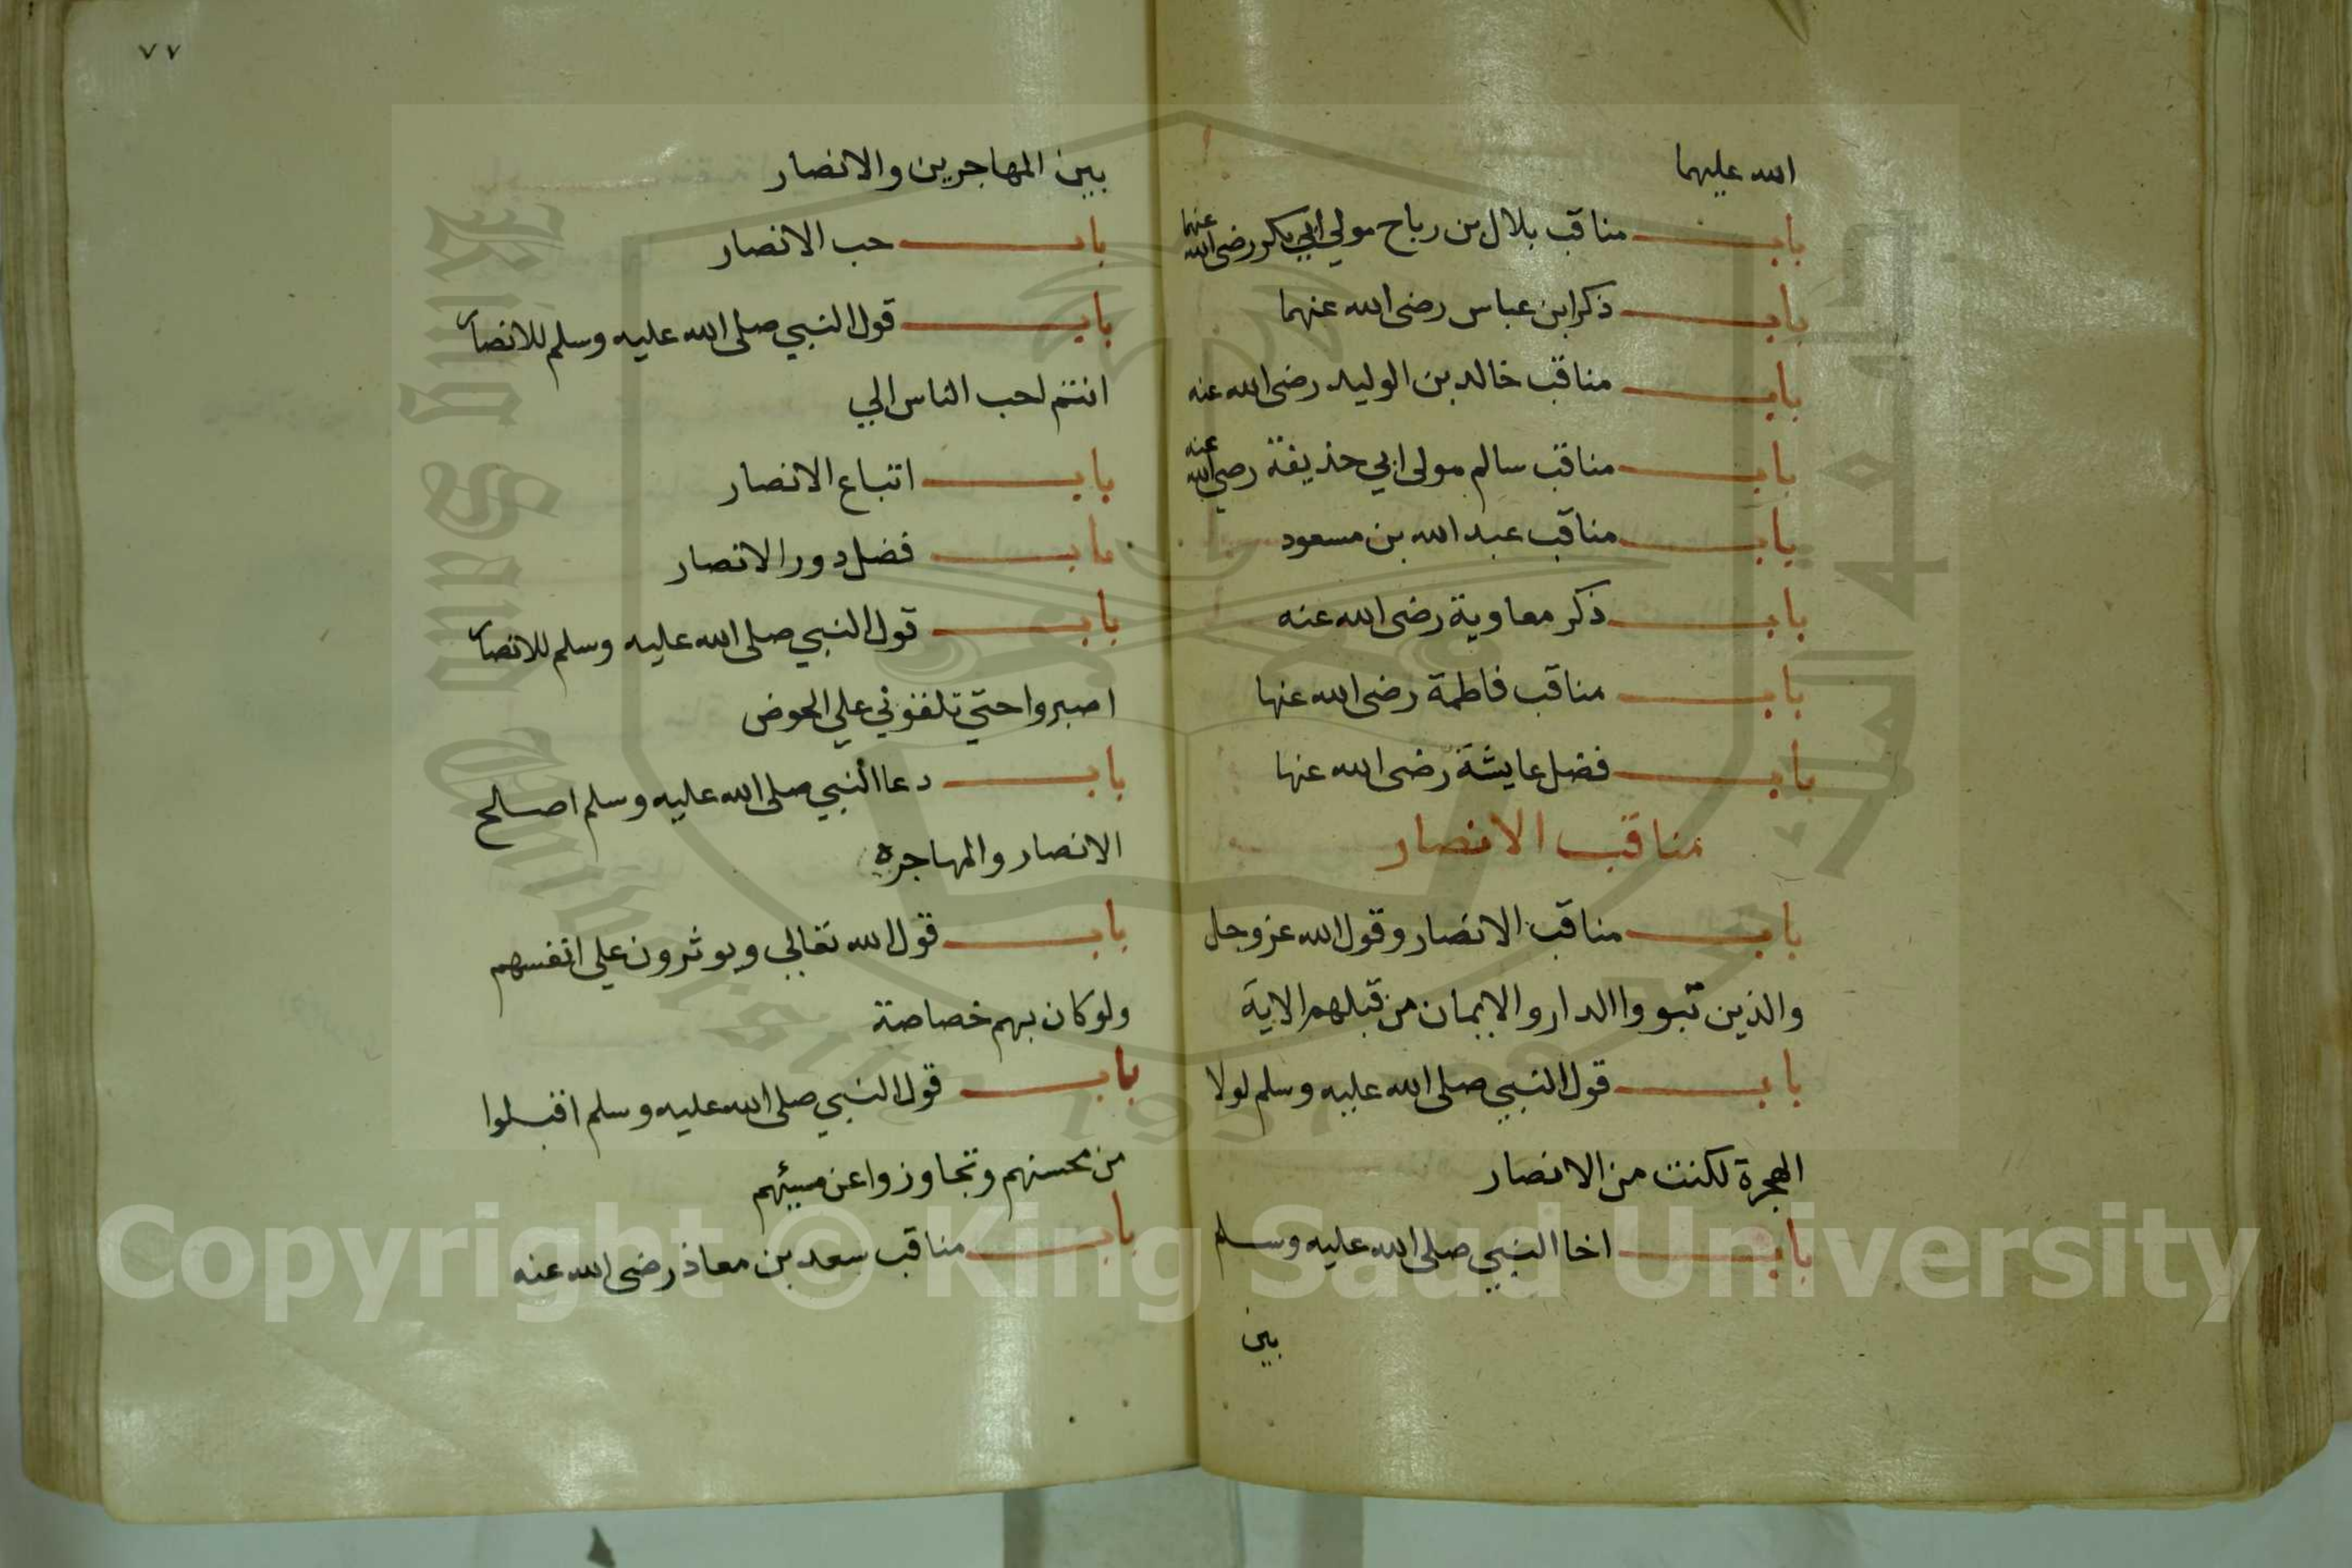 الله عليهما
باب مناقب بلال بن رباح مولي ابي بكر رضي الله عنهما
باب ذكر ابن عباس رضي الله عنهما
باب مناقب خالد بن الوليد رضي الله عنه
باب مناقب سالم مولى ابي حذيفة رضي الله عنه
باب مناقب عبد الله بن مسعود
باب ذكر معاوية رضي الله عنه
باب مناقب فاطمة رضي الله عنها
باب فضل عايشة رضي الله عنها
مناقب الانصار
باب مناقب الانصار وقول الله عز وجل
والذين تبووا الدار والايمان من قبلهم الاية
باب قول النبي صلى الله عليه وسلم لولا
الهجرة لكنت من الانصار
باب اخا النبي صلى الله عليه وسلم
بين
٧٧
بين المهاجرين والانصار
باب حب الانصار
باب قول النبي صلى الله عليه وسلم للانصار
انتم احب الناس الي
باب اتباع الانصار
باب فضل دور الانصار
باب قول النبي صلى الله عليه وسلم للانصار
اصبروا حتي تلقوني علي الحوض
باب دعا النبي صلى الله عليه وسلم اصلح
الانصار والمهاجره
باب قول الله تعالي ويوثرون علي انفسهم
ولو كان بهم خصاصة
باب قول النبي صلى الله عليه وسلم اقبلوا
من محسنهم وتجاوزوا عن مسيئهم
باب مناقب سعد بن معاذ رضي الله عنه
King Saud University
1957
Copyright © King Saud University